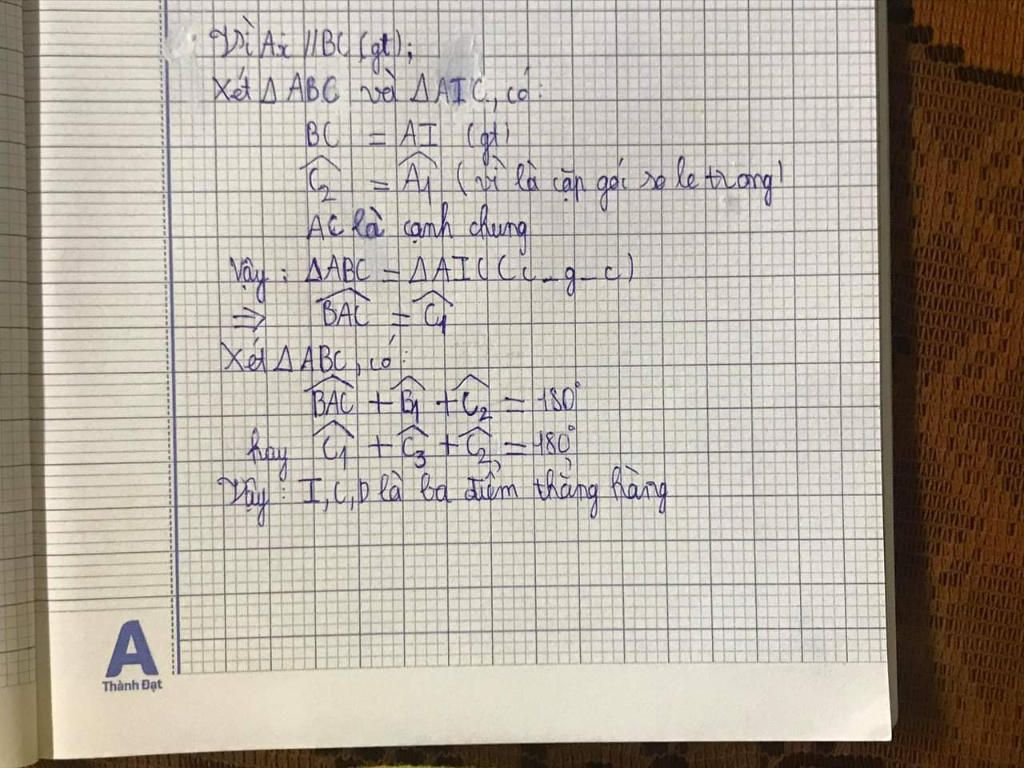 Vì Ax // BC (gt);
Xét Δ ABC và ΔAIC, có:
BC = AI (gt)
Ĉ₂ = Â₁ (vì là cặp gói so le trong)
AC là cạnh chung
Vậy: ΔABC = ΔAIC (c-g-c)
⇒ B̂AC = Ĉ₁
Xét ΔABC, có:
B̂AC + B̂₁ + Ĉ₂ = 180°
hay Ĉ₁ + Ĉ₃ + Ĉ₂ = 180°
Vậy: I, C, D là ba điểm thẳng hàng
A
Thành Đạt